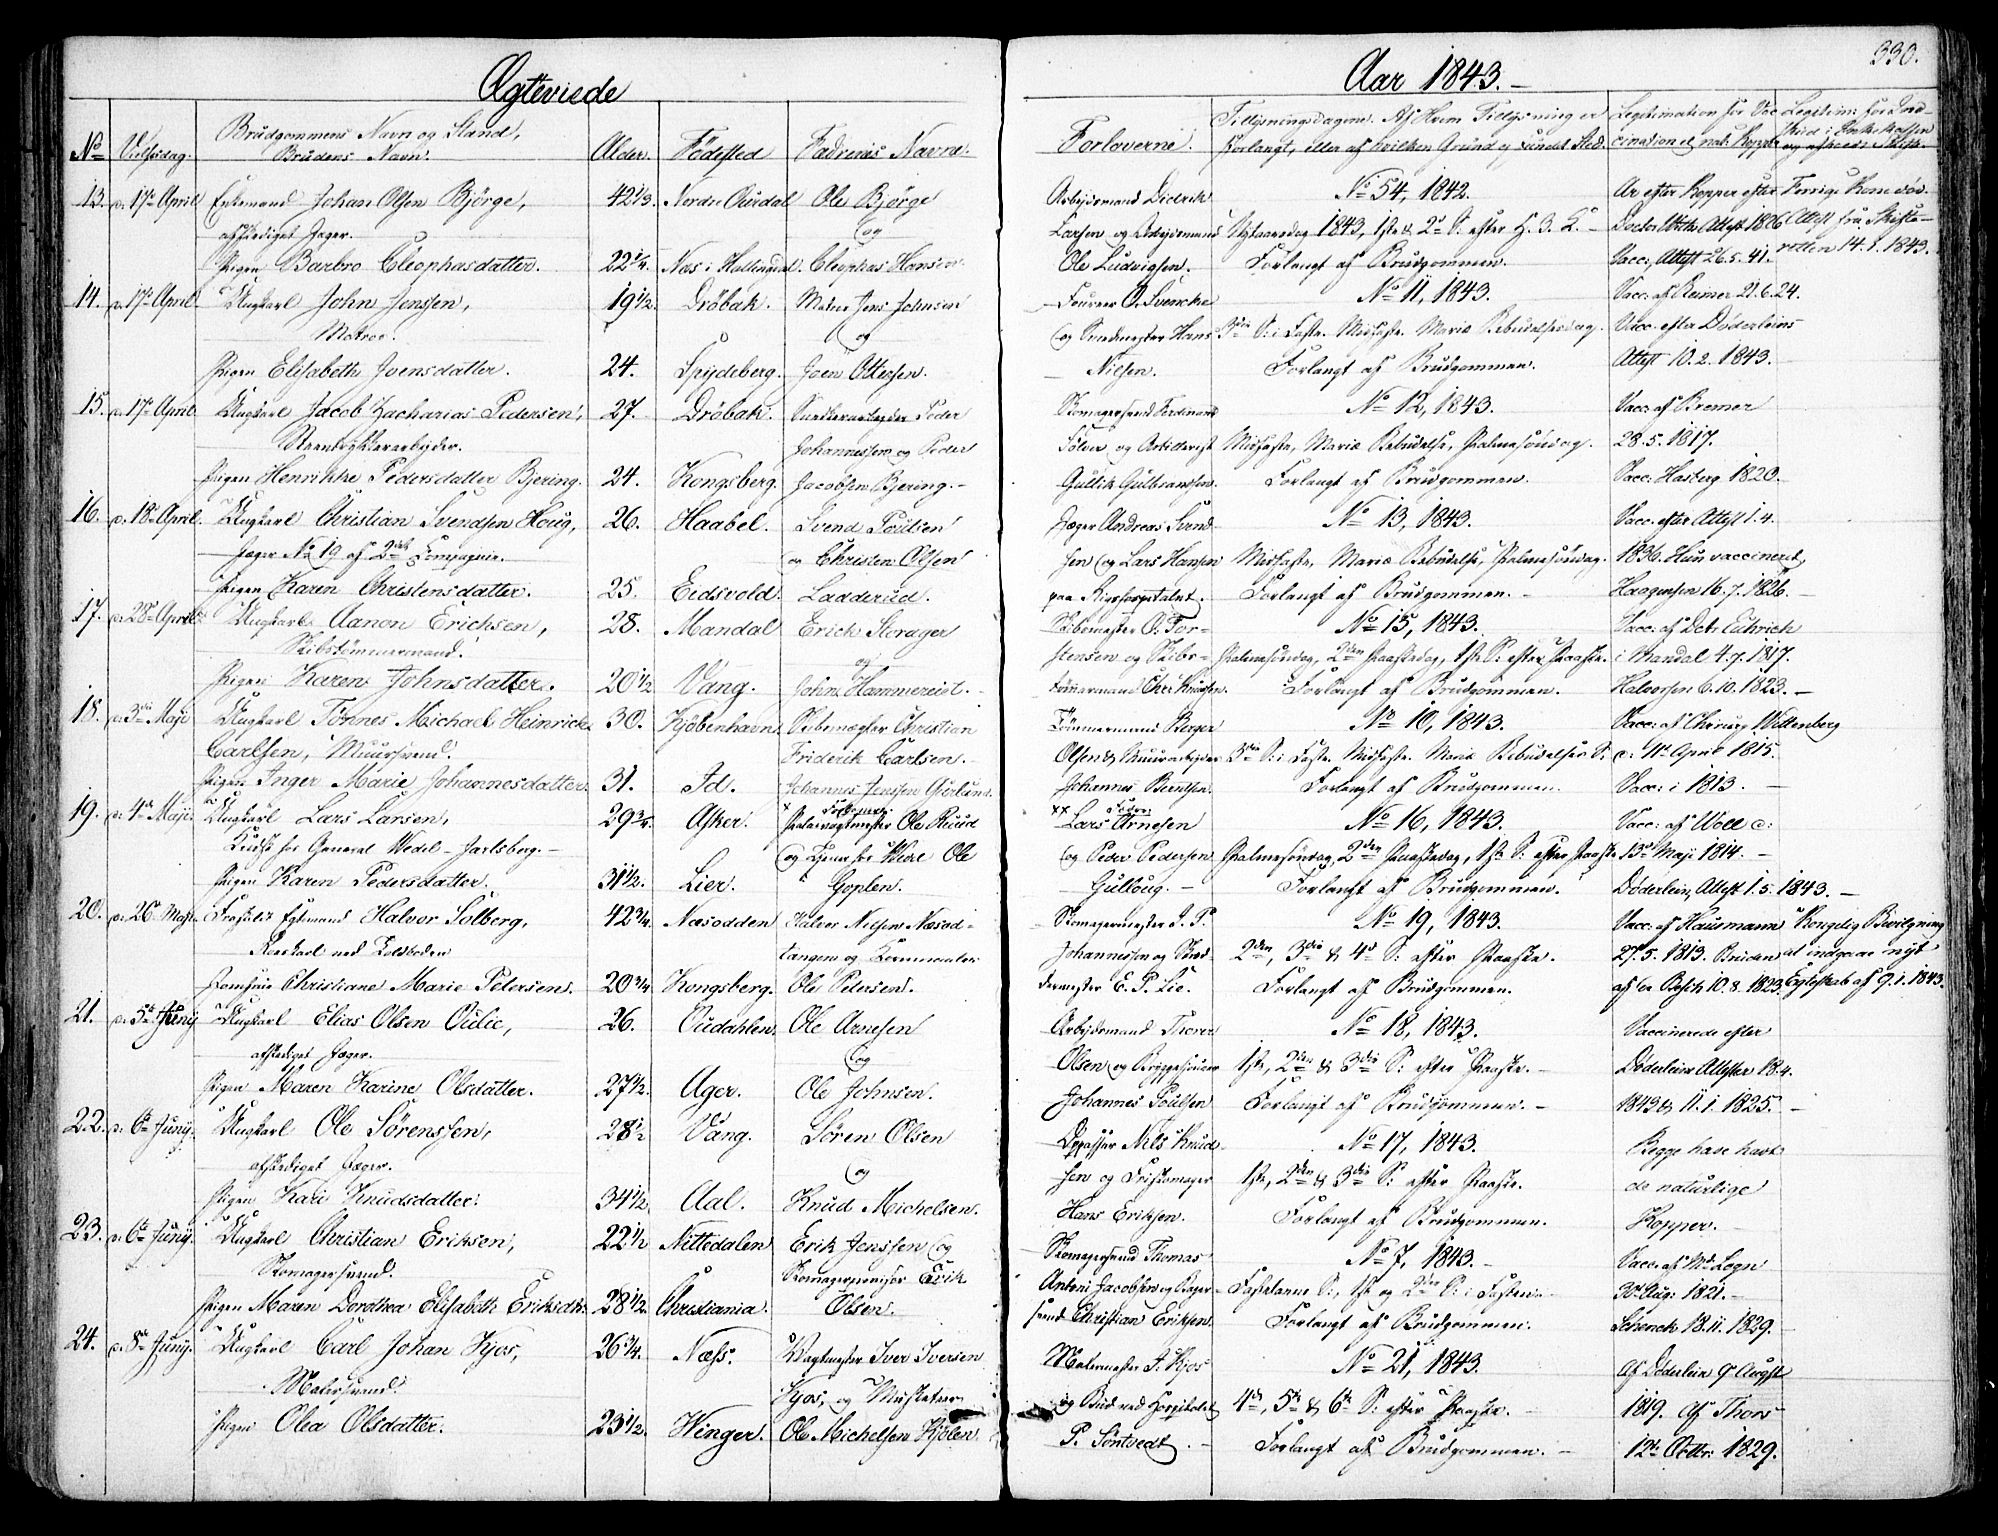 330.
Ægteviede
No
Vielsesdag.
Brudgommens Navn og Stand,
Brudens Navn.
Alder.
Fødested
Fædrenes Navne.
13. d. 17de April Enkemand Johan Olsen Bjørge, 42 1/3. Nordre Ourdal Ole Bjørge
afskediget Jæger. og
Pigen Barbro Cleophasdatter. 22 1/4. Næs i Hallingdal. Cleophas Hansen
14. d. 17de April Ungkarl John Jenssen, 19 1/2 Drøbak. Matros Jens Johnsen
Matros. og
Pigen Elisabeth Joensdatter. 24. Spydeberg. Joen Ottersen.
15. d. 17de April Ungkarl Jacob Zacharias Pedersen, 27. Drøbak. Snedkerarbeider Peder
Johannessen og Peder
Pigen Henrikke Pedersdatter Bjering. 24. Kongsberg. Jacobsen Bjering.
16. d. 18de April. Ungkarl Christian Svendsen Houg, 26. Haabel. Svend Poulsen
Jæger No 19 af 2det Compagnie. og Christen Olsen
Pigen Karen Christensdatter. 25. Eidsvold. Ladderud.
17. d. 28de April Ungkarl Aanon Erichsen, 28. Mandal Erich Storager
Skibstømmermand. og
Pigen Karen Johnsdatter. 20 1/2 Vang. John Hammereist.
18. d. 3die Maji Ungkarl Tønnes Michael Heinrick 30. Kjøbenhavn. Skibsmægler Christian
Carlsen, Muursvend. Friderik Carlsen.
Pigen Inger Marie Johannesdatter. 31. Id. Johannes Jenssen
19. d. 4de Maji. Ungkarl Lars Larsen, 29 3/4. Asker. Ole Ruud
Kudsk hos General Wedel-Jarlsberg. og Ole
Pigen Karen Pedersdatter. 31 1/2. Lier. Goplen.
20. d. 26de Maji. Fraskilt Egtemand Halvor Solberg, 42 3/4. Næsodden Halvor Nilsen Næsod-
Roerkarl ved Toldboden tangen og
Jomfrue Christiane Marie Petersen. 20 3/4 Kongsberg. Ole Petersen.
21. d. 5te Juny Ungkarl Elias Olsen Oulie, 26. Oudahlen. Ole Arnesen
afskediget Jæger. og
Pigen Maren Karine Olsdatter. 27 1/2. Ager. Ole Johnsen.
22. d. 6te Juny. Ungkarl Ole Sørenssen, 28 1/2 Vang. Søren Olsen
afskediget Jæger. og
Pigen Kari Knudsdatter. 34 1/2. Aal. Knud Michelsen.
23. d. 6te Juny. Ungkarl Christian Eriksen, 22 1/2 Nittedalen Erik Jenssen og
Skomagersvend. Erik
Pigen Maren Dorothea Elisabeth Eriksdtr. 28 1/2. Christiania. Olsen.
24. d. 8de Juny. Ungkarl Carl Johan Kjos, 26 3/4. Næss. Vagtmester Iver Iversen
Malersvend. Kjos, og Musketeer
Pigen Olea Olsdatter. 23 1/2. Winger. Ole Michelsen Kjølen.
Aar 1843.
Forloverne.
Tillysningsdagene. Af Hvem Tillysning er
forlangt, eller af hvilken Grund ei fundet Sted.
Legitimation for Vac-
cination el. nat. Kopper
Legitim: for Ind-
Arbejdsmand Diderik No 54, 1842. Ar efter Kopper efter
Larsen og Arbejdsmand Nytaarsdag 1843, 1ste & 2d S: efter H. 3. K. Attest 1826 Attest fra Skifte-
Ole Ludvigsen. Forlangt af Brudgommen. Vacc: Attest 26.5.41. retten 14.1.1843.
No 11, 1843. Vacc: af Reimer 21.6.24.
og Smedmester Hans 3die S: i Faste. Midfaste. Mariæ Bebudelsesdag. Vacc: efter Døderleins
Nilsen. Forlangt af Brudgommen. Attest 10.2.1843.
Skomagersvend Ferdinand No 12, 1843. Vacc: af Bremer
Sølver og Artillerist Midfaste, Mariæ Bebudelse, Palmesøndag. 28.5.1817.
Gullik Gulbranssen. Forlangt af Brudgommen. Vacc: Hasberg 1820.
Jæger Andreas Svend- No 13, 1843. Vacc: efter Attest 1.4.
sen og Lars Hansen Midfaste, Mariæ Bebudelse, Palmesøndag. 1836. Hun vaccineret
paa Rigshospitalet. Forlangt af Brudgommen. Haagensen 16.7.1826.
No 15, 1843. Vacc: af Dctr
stensen og Skibs- Palmesøndag, 2den Paaskedag, 1ste S: efter Paaske. i Mandal 4.7.1817.
tømmermand Chr: Knudsen. Forlangt af Brudgommen. Halvorsen 6.10.1823.
Tømmermand Berger No 10, 1843. Vacc: af Chirurg Wittenberg
Olsen & Muurarbejder 3die S: i Faste. Midfaste. Mariæ Bebudelses S: d. 11te April 1815.
Johannes Berntsen. Forlangt af Brudgommen. Vacc: i 1813.
Lars Arnesen No 16, 1843. Vacc: af Woll d:
og Peder Pedersen Palmesøndag, 2den Paaskedag, 1ste S: efter Paaske 13de Maji 1814.
Gulloug. Forlangt af Brudgommen. Døderlein, Attest 1.5.1843.
Skomagermester J. P. No 19, 1843. Vacc: af Hausmann Kongelig Bevilgning
Johannessen og Skræd- 2den, 3die & 4de S: efter Paaske. 27.5.1813. Bruden at indgaae nyt
dermester E. P. Lie. Forlangt af Brudgommen. 10.8.1823. Egteskab af 9.1.1843.
Arbejdsmand Thorer No 18, 1843. Vaccinerede efter
Olsen og 1ste, 2den & 3die S: efter Paaske. Døderleins Attester 18.4.
Johannes Poulsen Forlangt af Brudgommen. 1843 & 11.1.1825.
Opasser Nils Knud- No 17, 1843. Begge have havt
sen og 1ste, 2den & 3die S: efter Paaske. de naturlige
Hans Eriksen. Forlangt af Brudgommen. Kopper.
Skomagersvend Thomas No 7, 1843. Vacc: af
Antoni Jacobsen og Bager- Fastelavns S:, 1ste og 2den S: i Fasten. 30te Aug: 1821.
svend Christian Eriksen. Forlangt af Brudgommen. Schenck 18.11.1829.
Malermester J. Kjos No 21, 1843. Af Døderlein 9de August
og Bud ved Hospitalet 4de, 5te & 6te S: efter Paaske. 1819. Af Thors
P. Søntvedt. Forlangt af Brudgommen. 12te Octbr: 1829.